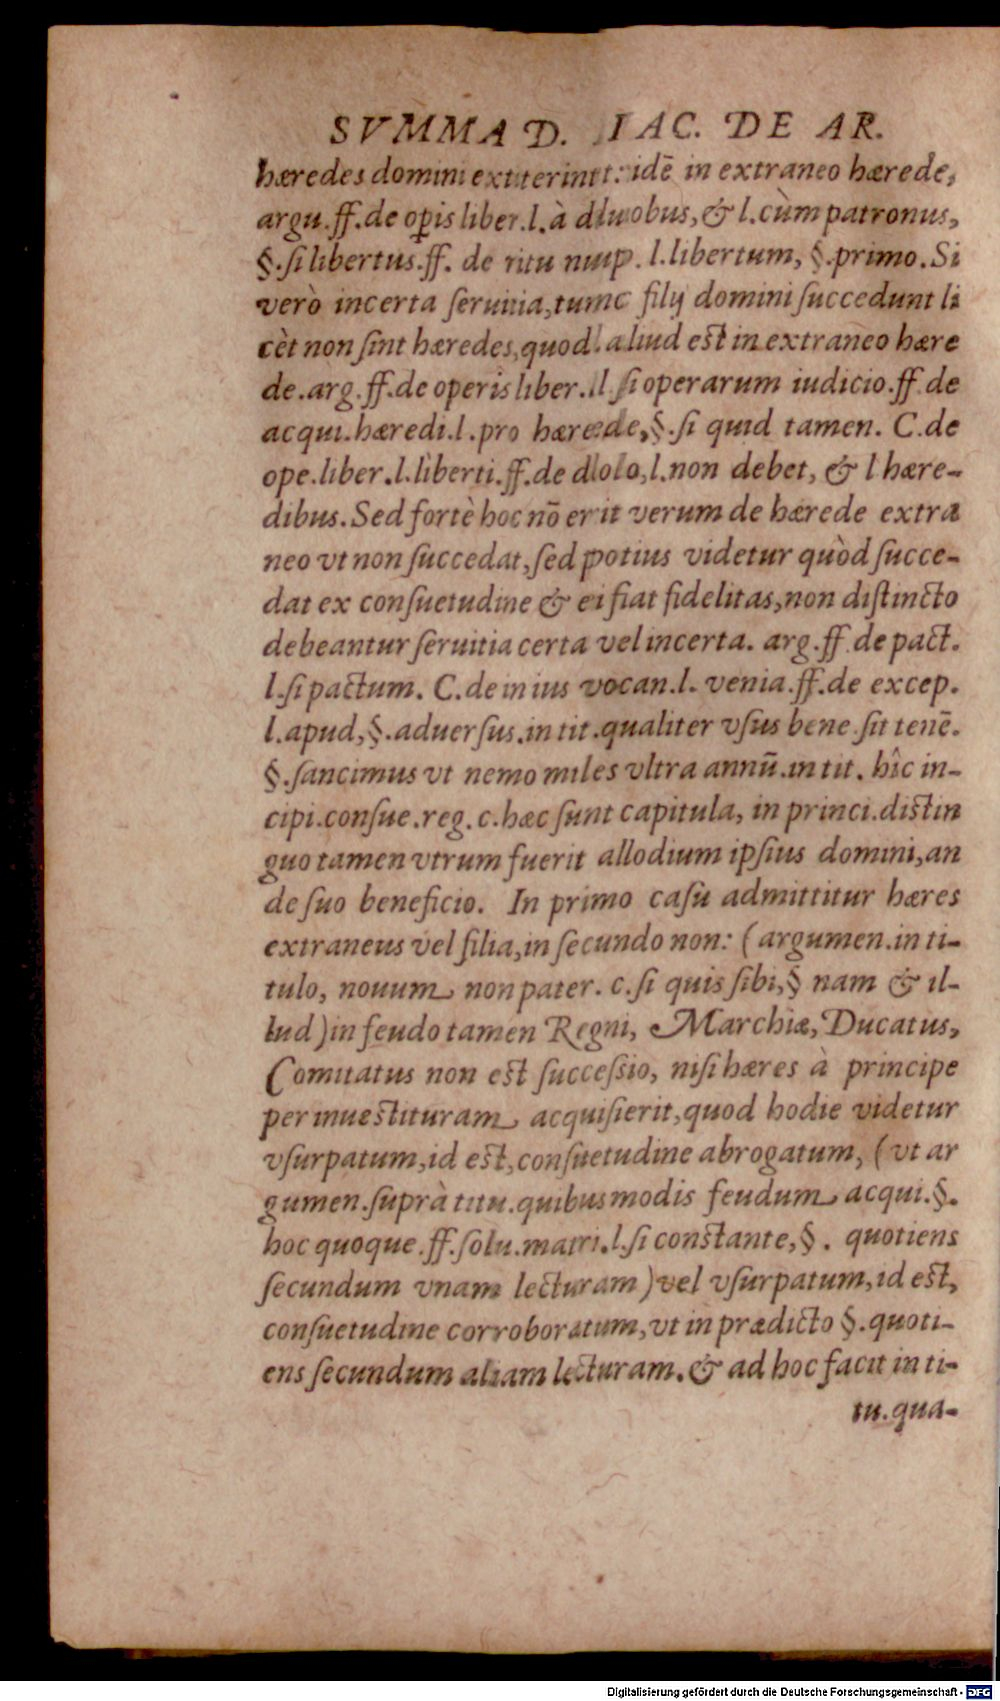 SVMMA D. IAC. DE AR.
hæredes domini extiterint: idē in extraneo hærede,
argu. ff. de oꝑis liber. l. à duobus, & l. cùm patronus,
§. si libertus. ff. de ritu nup. l. libertum, §. primo. Si
verò incerta seruitia, tunc filij domini succedunt li
cèt non sint hæredes, quod aliud est in extraneo hære
de. arg. ff. de operis liber. l. si operarum iudicio. ff. de
acqui. hæredi. l. pro hærede, §. si quid tamen. C. de
ope. liber. l. liberti. ff. de dolo, l. non debet, & l hære-
dibus. Sed fortè hoc nō erit verum de hærede extra
neo vt non succedat, sed potius videtur quòd succe-
dat ex consuetudine & ei fiat fidelitas, non distincto
debeantur seruitia certa vel incerta. arg. ff. de pact.
l. si pactum. C. de in ius vocan. l. venia. ff. de excep.
l. apud, §. aduersus. in tit. qualiter vsus bene. sit tenē.
§. sancimus vt nemo miles vltra annū. in tit. hîc in-
cipi. consue. reg. c. hæc sunt capitula, in princi. distin
guo tamen vtrum fuerit allodium ipsius domini, an
de suo beneficio. In primo casu admittitur hæres
extraneus vel filia, in secundo non: (argumen. in ti-
tulo, nouum non pater. c. si quis sibi, § nam & il-
lud) in feudo tamen Regni, Marchiæ, Ducatus,
Comitatus non est successio, nisi hæres à principe
per inuestituram acquisierit, quod hodie videtur
vsurpatum, id est, consuetudine abrogatum, (vt ar
gumen. suprà titu. quibus modis feudum acqui. §.
hoc quoque. ff. solu. matri. l. si constante, §. quotiens
secundum vnam lecturam) vel vsurpatum, id est,
consuetudine corroboratum, vt in prædicto §. quoti-
ens secundum aliam lecturam. & ad hoc facit in ti-
tu. qua-
Digitalisierung gefördert durch die Deutsche Forschungsgemeinschaft - DFG